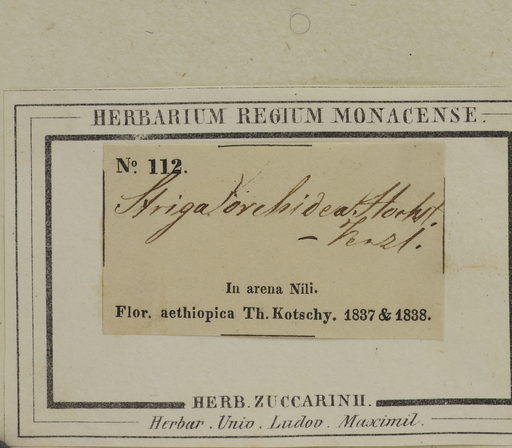 HERBARIUM REGIUM MONACENSE.
No 112.
Striga orchidea Hochst
In arena Nili.
Flor. aethiopica Th. Kotschy. 1837 & 1838.
HERB. ZUCCARINII.
Herbar. Univ. Ludov. Maximil.